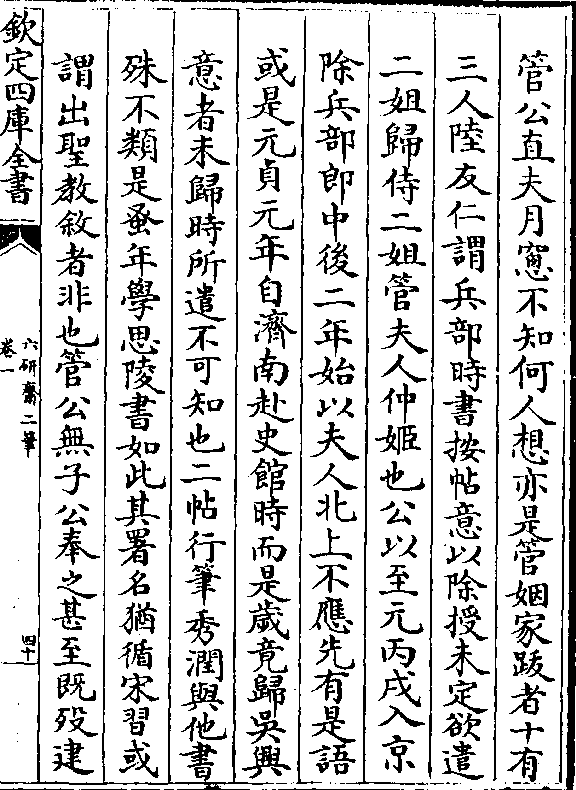 管公直夫月窻不知何人想亦是管姻家跋者十有
三人陸友仁謂兵部時書按帖意以除授未定欲遣
二姐歸侍二姐管夫人仲姬也公以至元丙戌入京
除兵部郎中後二年始以夫人北上不應先有是語
或是元貞元年自濟南赴史館時而是歲竟歸吳興
意者未歸時所遣不可知也二帖行筆秀潤與他書
殊不類是蚤年學思陵書如此其署名猶循宋習或
謂出聖教敘者非也管公無子公奉之甚至既歿建
欽定四庫全書
六研齋二筆
卷一
四十